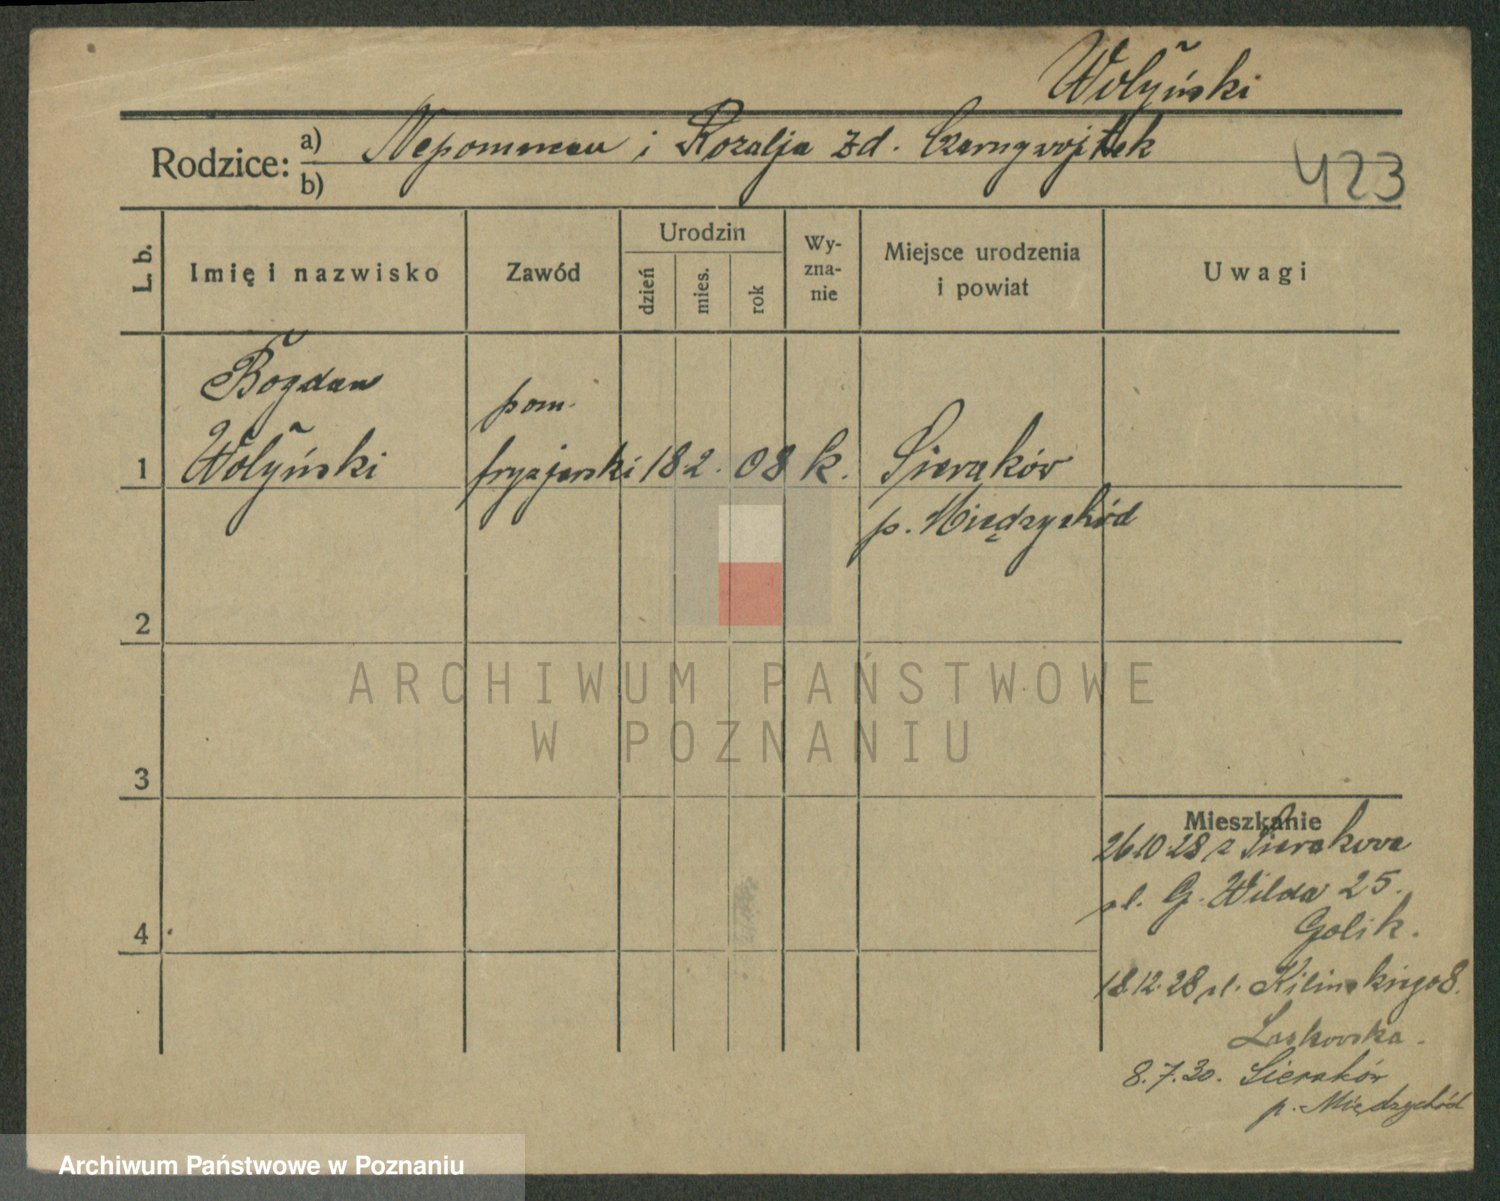 Wołyński
Rodzice: a) Nepomucen i Rozalja zd. Czarnywojtek
b)
423
L. b.
Imię i nazwisko
Zawód
Urodzin
dzień
mies.
rok
Wy-
zna-
nie
Miejsce urodzenia
i powiat
Uwagi
Bogdan
pom.
1 Wołyński fryzjerski 18 2. 08 k. Sieraków
p. Międzychód
2
3
4
Mieszkanie
26.10.28 z Sierakowa
ul. G. Wilda 25.
Golik.
18.12.28 ul. Kilińskiego 8.
Laskowska.
8.7.30. Sieraków
p. Międzychód
ARCHIWUM PAŃSTWOWE
W POZNANIU
Archiwum Państwowe w Poznaniu